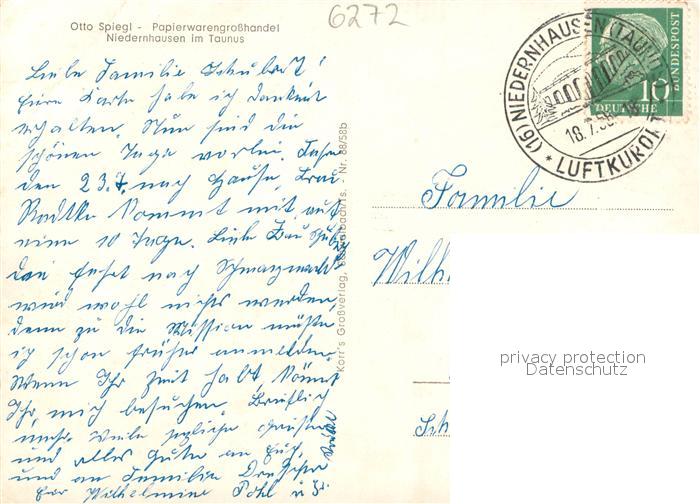 6272
Otto Spiegl - Papierwarengroßhandel
Niedernhausen im Taunus
Liebe Familie Schubert!
Eure Karte habe ich dankend
erhalten. Nun sind die
schönen Tage vorbei. Fahre
den 23.7. nach Hause, Frau
Radtke kommt mit auf
eine 10 Tage. Liebe Frau Schubert
die Fahrt nach Schwarzwald
wird wohl nichts werden,
denn zu die Mission müßte
ich schon früher anmelden.
Wenn Ihr Zeit habt, könnt
Ihr mich besuchen. Brieflich
mehr. Viele herzliche Grüße
und alles Gute an Euch,
und an Familie
Wilhelmine Pohl u.
Korr's Großverlag, Nr. 88/58b
(16) NIEDERNHAUSEN (TAUNUS)
18.7.58
* LUFTKURORT
10
DEUTSCHE
BUNDESPOST
Familie
Wilh
Sch
privacy protection
Datenschutz